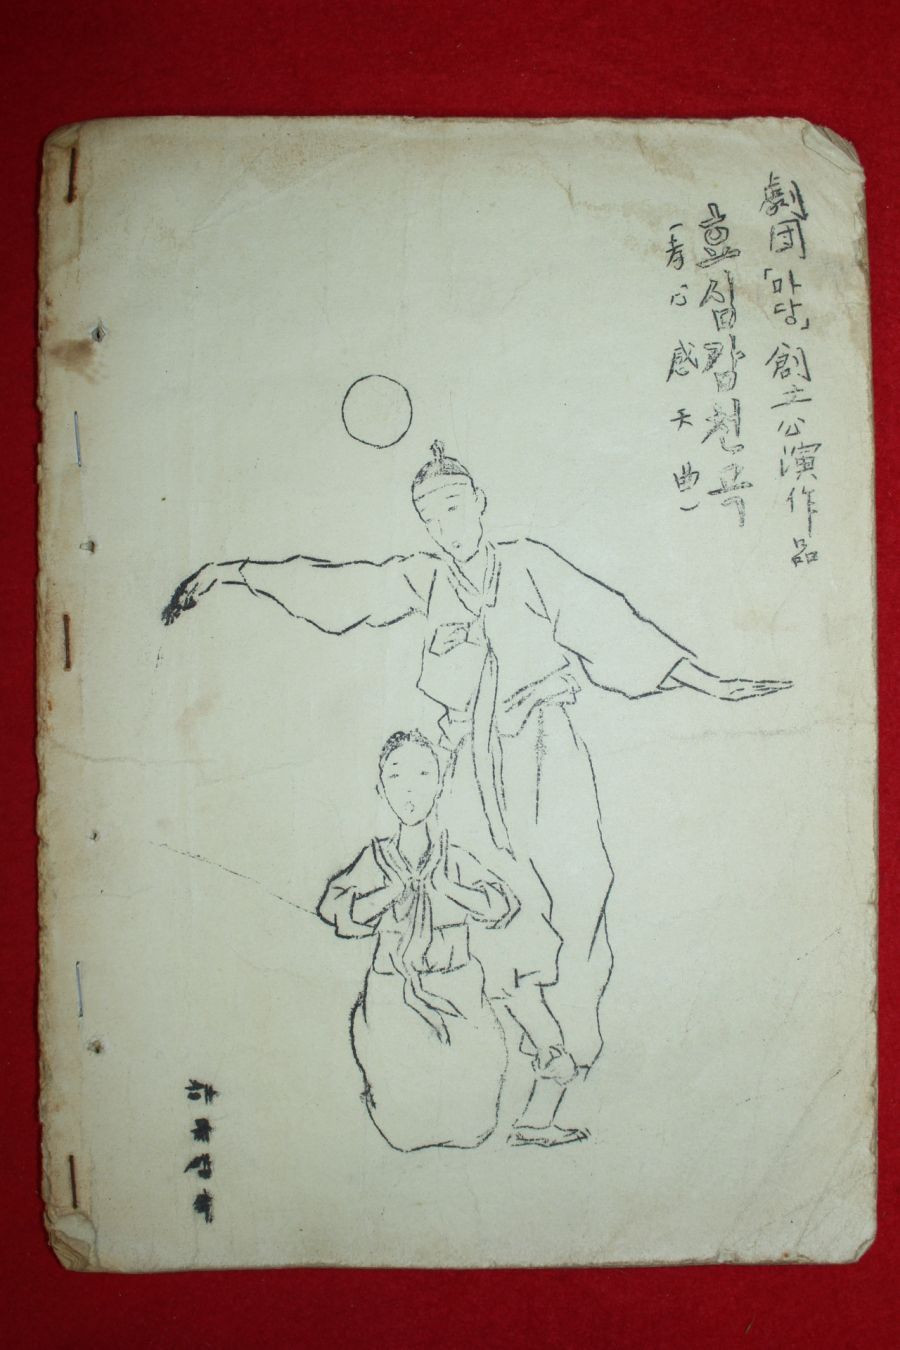 劇団「마당」創立公演作品
효심감천곡
(孝心感天曲)